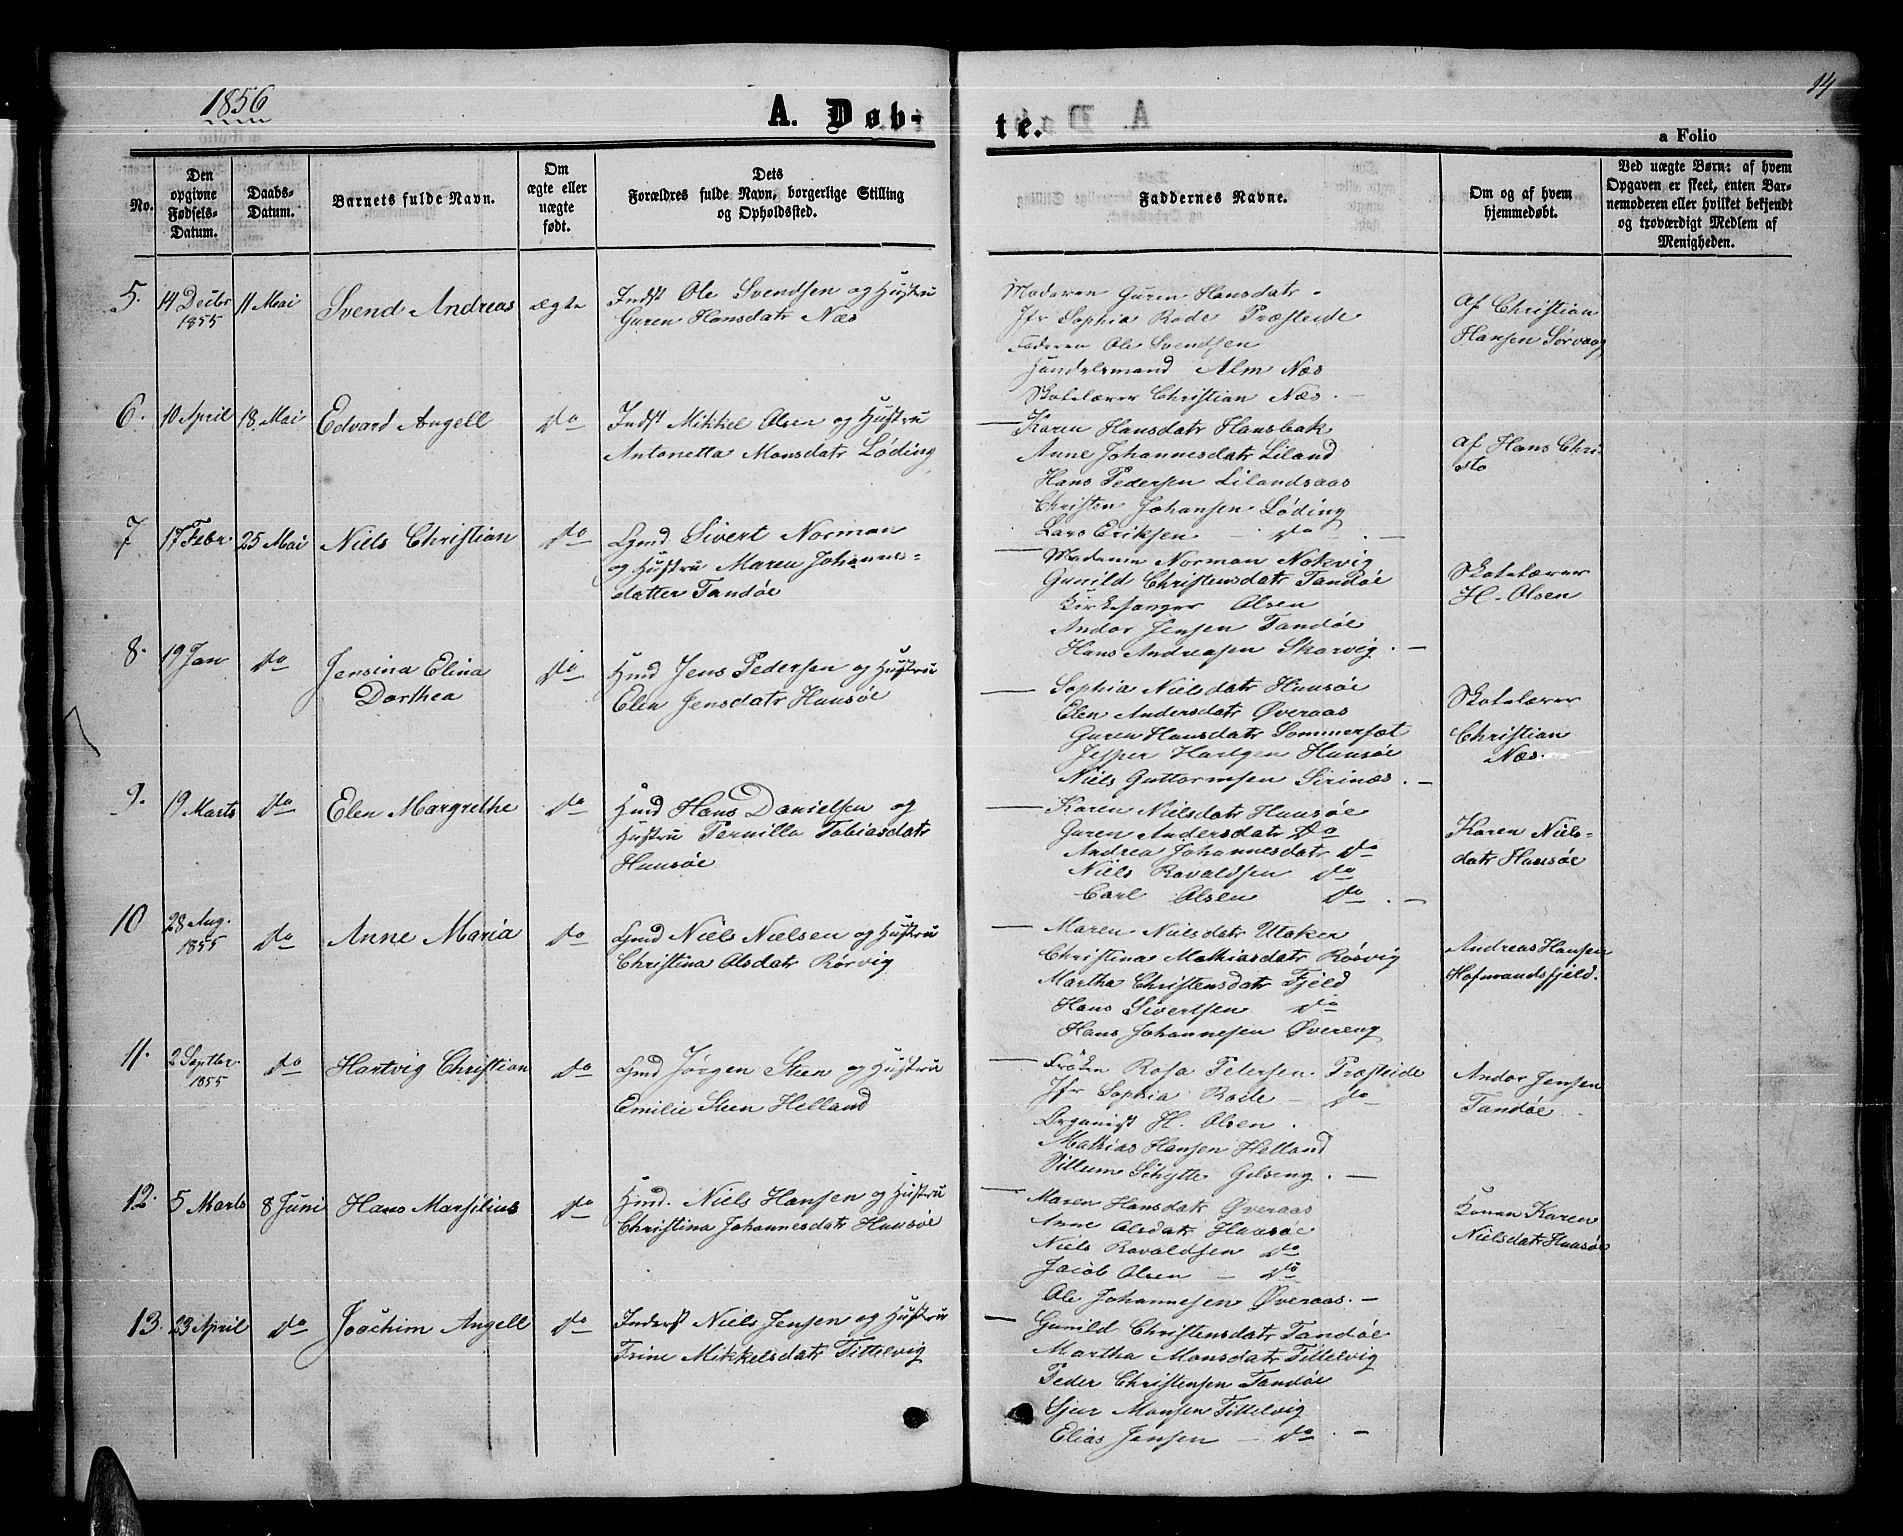 1856
14
A. Døb-
te.
a Folio
No.
Den
opgivne
Fødsels-
Datum.
Daabs-
Datum.
Barnets fulde Navn.
Om
ægte eller
uægte
født.
Dets
Forældres fulde Navn, borgerlige Stilling
og Opholdssted.
Faddernes Navne.
Om og af hvem
hjemmedøbt.
Ved uægte Børn: af hvem
Opgaven er skeet, enten Bar-
nemoderen eller hvilket bekjendt
og troværdigt Medlem af
Menigheden.
5.
14 Decbr
1855
11 Mai
Svend Andreas
ægte
Indst Ole Svendsen og Hustru
Guren Hansdatr Næs
Moderen Guren Hansdatr
Jfr Sophia Rode Præsteide
Faderen Ole Svendsen
Handelsmand Alm Næs
Skolelærer Christian Næs. —
af Christian
Hansen Sørvaag
6.
10 April
18 Mai
Edvard Angell
do
Indst Mikkel Olsen og Hustru
Antonetta Monsdatr Løding
— Karen Hansdatr Hansbak
Anne Johannesdatr Liland
Hans Pedersen Lilandsaas
Christen Johansen Løding
Lars Eriksen — do —
af Hans Chri-
sto
7
17 Febr.
25 Mai
Niels Christian
do
Gmd. Sivert Norman
og Hustru Maren Johannes-
datter Tandøe
— Madame Norman Nokvig
Gunild Christensdatr Tandøe
Kirkesanger Olsen
Andor Jensen Tandøe
Hans Andreasen Skarvig. —
Skolelærer
H. Olsen
8.
19 Jan
do
Jensina Elina
Dorthea
do
Hmd Jens Pedersen og Hustru
Elen Jensdatr Huusøe
— Sophia Nielsdatr Huusøe
Elen Andersdatr Øveraas
Guren Hansdatr Sommerset
Jesper Hartgen Huusøe
Niels Guttormsen Serinæs. —
Skolelærer
Christian
Næs.
9.
19 Marts
do
Elen Margrethe
do
Hmd Hans Danielsen og
Hustru Pernilla Tobiasdatr
Huusøe
— Karen Nielsdatr Huusøe
Guren Andersdatr do
Andrea Johannesdatr do
Niels Ravaldsen do
Carl Olsen do. —
Karen Niels-
datr Huusøe
10
28 Aug.
1855
do
Anne Maria
do
Gmd Niels Nielsen og Hustru
Christina Olsdatr Rørvig
— Maren Nielsdatr Utaker
Christina Mathiasdatr Røsvig
Martha Christensdatr Fjeld
Hans Sivertsen do
Hans Johannesen Øvereng
Andreas Hansen
Hofmandsfjeld.
11.
2 Septbr.
1855
do
Hartvig Christian
do
Gmd Jørgen Steen og Hustru
Emilie Steen Helland
— Frøken Rosa Petersen. Præsteide
Jfr Sophia Rode — do
Organist H. Olsen.
Mathias Hansen Helland
Villum Schytte Gilseng. —
Andor Jensen
Tandøe
12.
5 Marts
8 Juni
Hans Marsilius
do
Hmd. Niels Hansen og Hustru
Christina Johannesdatr Huusøe
— Maren Hansdatr Øveraas
Anne Olsdatr Huusøe
Niels Ravaldsen do
Jacob Olsen — do
Ole Johannesen Øveraas. —
Konen Karen
Nielsdatr Huusøe
13.
23 April
do
Joachim Angell
do
Inderst Niels Jensen og Hustru
Trine Mikkelsdatr Tittelvig
— Gunild Christensdatr Tandøe
Martha Monsdatr Tittelvig
Peder Christensen Tandøe
Sjur Monsen Tittelvig
Elias Jensen — do. —